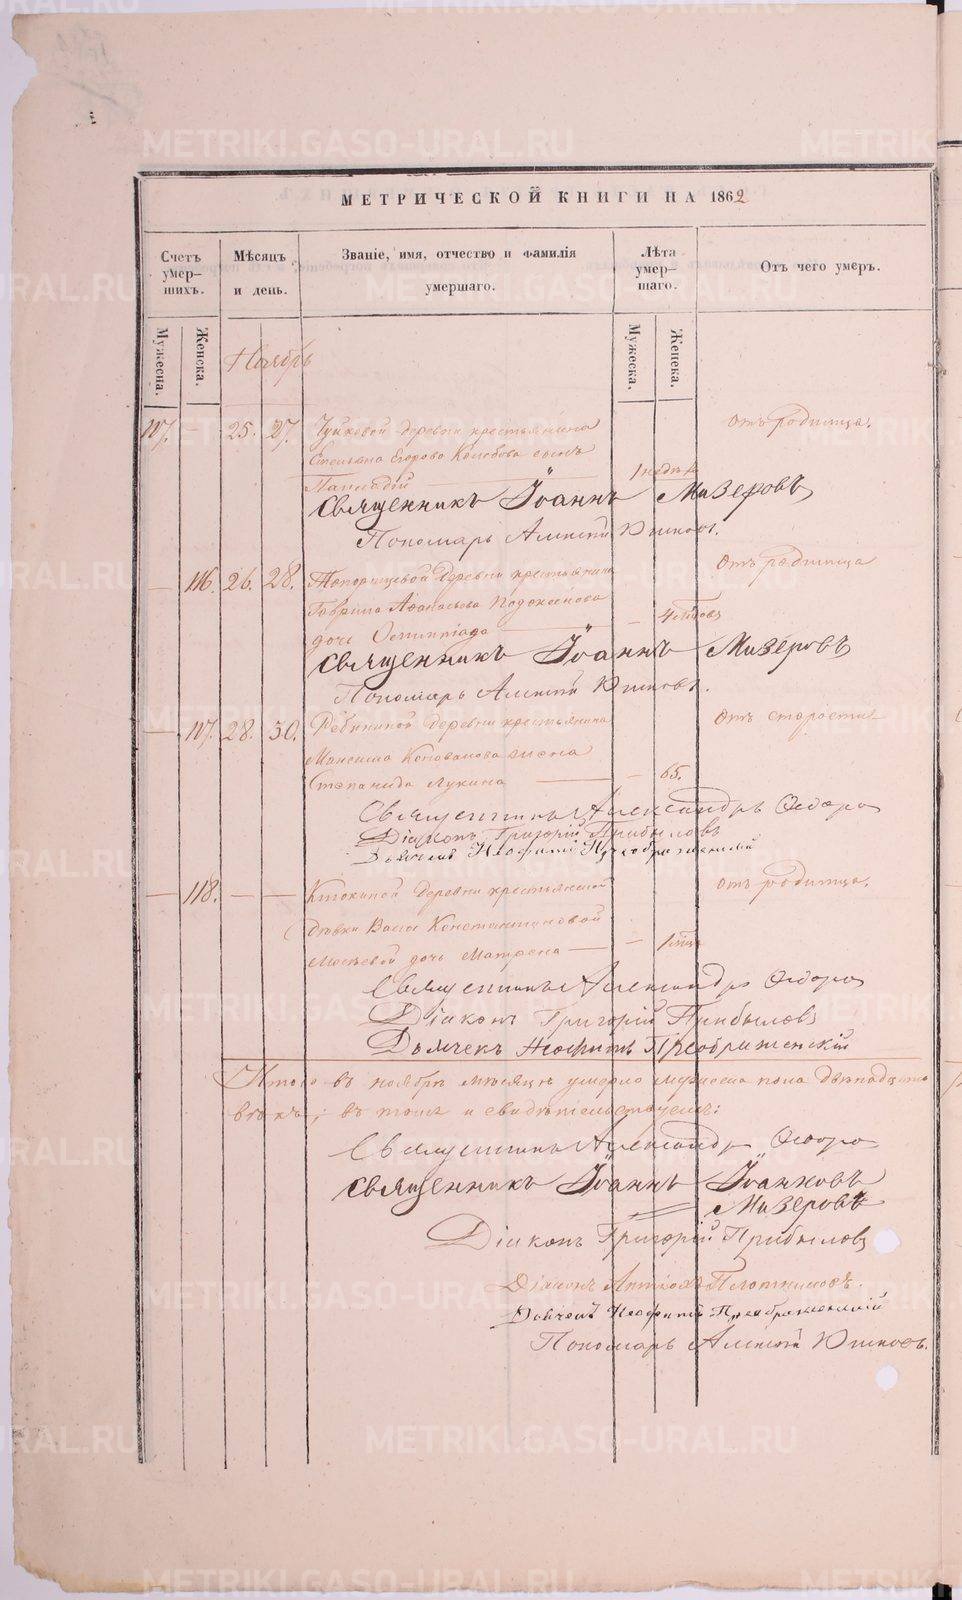 МЕТРИЧЕСКОЙ КНИГИ НА 1862
Счетъ умер-шихъ.
Мѣсяцъ и день.
Званіе, имя, отчество и фамилія умершаго.
Лѣта умер-шаго.
Отъ чего умеръ.
Мужеска.
Женска.
Мужеска.
Женска.
Ноябрь
117. — 25. 27. деревни крестьянина
Егорова сынъ
1 недѣл
отъ родимца.
Священникъ Іоаннъ Мизеровъ
Пономарь Алексѣй Юшковъ.
— 116. 26. 28. Топорищевой деревни крестьянина
Гавриила Аѳанасьева
дочь Олимпіада — 4
отъ родимца
Священникъ Іоаннъ Мизеровъ
Пономарь Алексѣй Юшковъ.
— 117. 28. 30. деревни крестьянина
Максима Коновалова жена
Степанида Лукина — 65.
отъ старости
Священникъ Александръ
Діаконъ Григорій Прибыловъ
Дьячекъ Неофитъ Преображенскій
— 118. — — деревни крестьянской
дѣвки Константиновой
дочь Матрена — 1
отъ родимца.
Священникъ Александръ
Діаконъ Григорій Прибыловъ
Дьячекъ Неофитъ Преображенскій
Итого въ ноябрѣ мѣсяцѣ умерло мужеска пола двѣнадцать
въ томъ и свидѣтельствуемъ:
Священникъ Александръ
Священникъ Іоаннъ Іоанновъ
Мизеровъ
Діаконъ Григорій Прибыловъ
Діаконъ Антіохъ Плотниковъ.
Дьячекъ Неофитъ Преображенскій
Пономарь Алексѣй Юшковъ.
METRIKI.GASO-URAL.RU